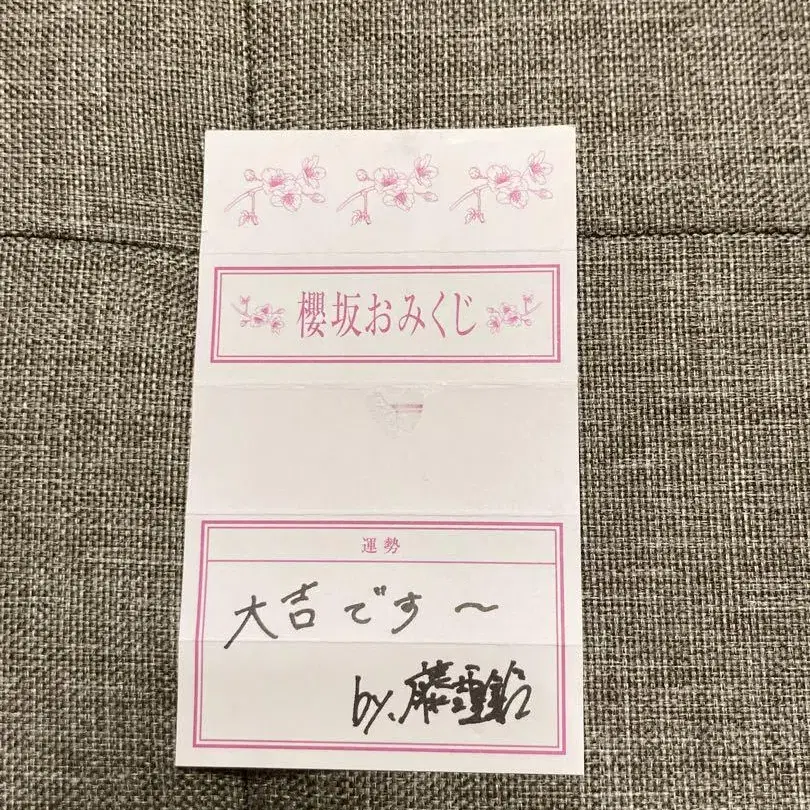 櫻坂おみくじ
運勢
大吉です〜
by.藤吉夏鈴